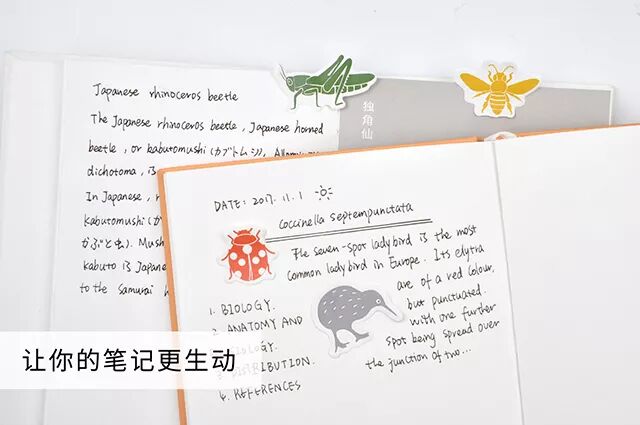 Japanese rhinoceros beetle
The Japanese rhinoceros beetle, Japanese horned
beetle, or kabutomushi (カブトムシ),
dichotoma, is
In Japanese,
kabutomushi (か
かぶと虫). Mush
kabuto is Japane
to the samurai h
独角仙
DATE: 2017. 11. 1
Coccinella septempunctata
The seven-spot ladybird is the most
common ladybird in Europe. Its elytra
are of a red colour,
but punctuated
with one further
spot being spread over
the junction of two...
1. BIOLOGY.
2. ANATOMY AND
IOLOGY.
RIBUTION.
4. REFERENCES
让你的笔记更生动